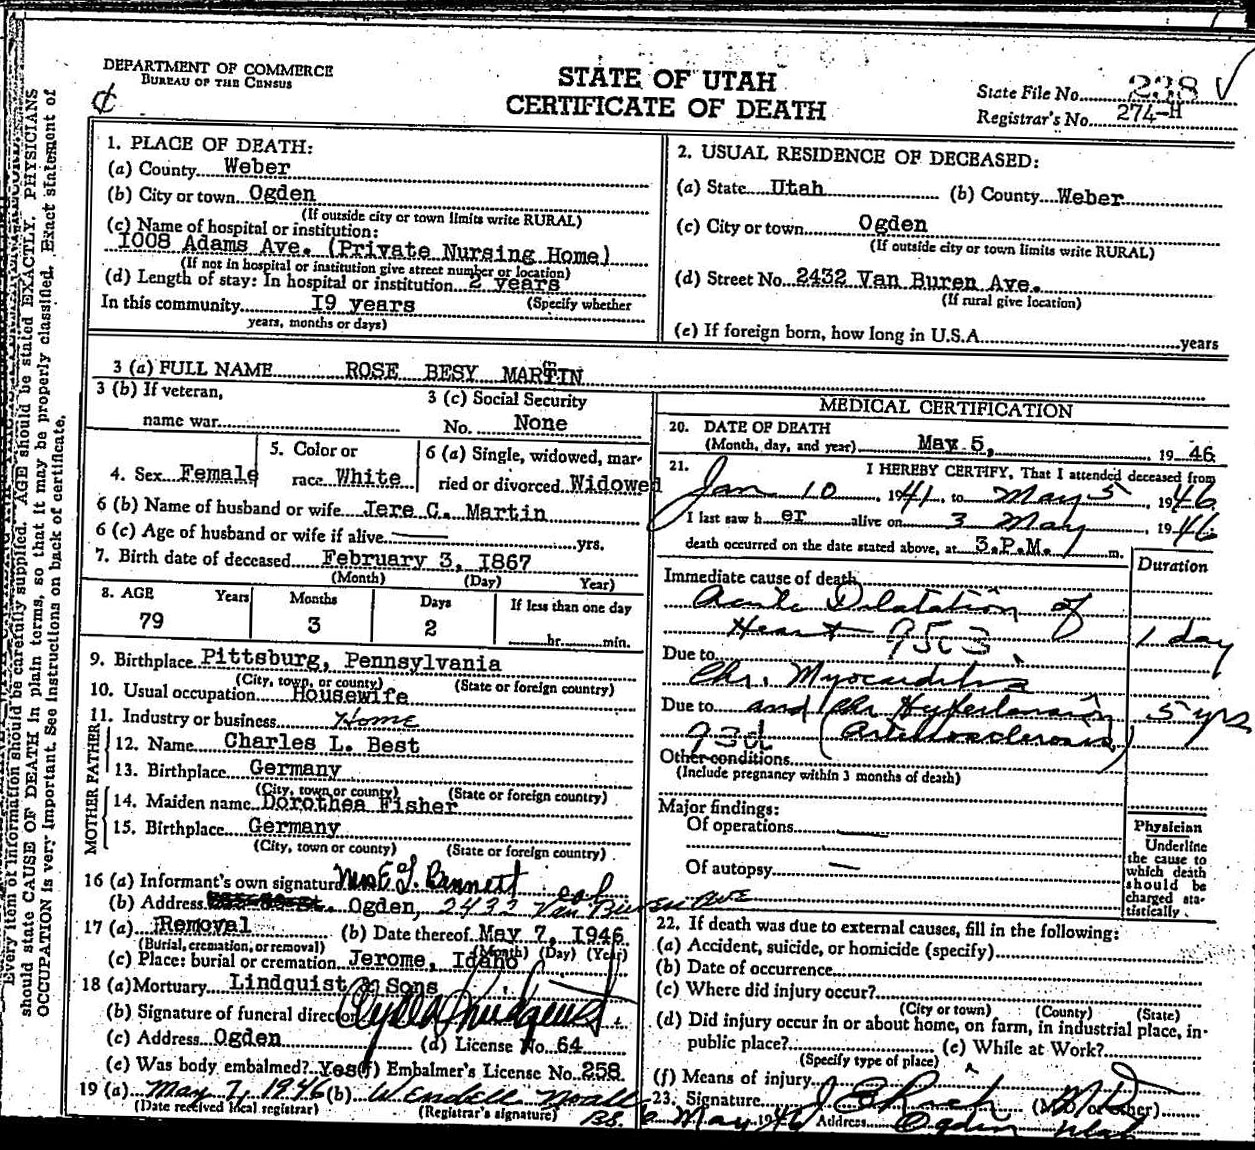 DEPARTMENT OF COMMERCE
BUREAU OF THE CENSUS
STATE OF UTAH
CERTIFICATE OF DEATH
State File No. 238 V
Registrar's No. 274-H
Every item of information should be carefully supplied. AGE should be stated EXACTLY. PHYSICIANS
should state CAUSE OF DEATH in plain terms, so that it may be properly classified. Exact statement of
OCCUPATION is very important. See instructions on back of certificate.
1. PLACE OF DEATH:
(a) County Weber
(b) City or town Ogden
(If outside city or town limits write RURAL)
(c) Name of hospital or institution:
1008 Adams Ave. (Private Nursing Home)
(If not in hospital or institution give street number or location)
(d) Length of stay: In hospital or institution 2 years
In this community 19 years (Specify whether
years, months or days)
2. USUAL RESIDENCE OF DECEASED:
(a) State Utah (b) County Weber
(c) City or town Ogden
(If outside city or town limits write RURAL)
(d) Street No. 2432 Van Buren Ave.
(If rural give location)
(e) If foreign born, how long in U.S.A. years
3 (a) FULL NAME ROSE BESY MARTIN
3 (b) If veteran,
name war
3 (c) Social Security
No. None
4. Sex Female
5. Color or
race White
6 (a) Single, widowed, mar-
ried or divorced Widowed
6 (b) Name of husband or wife Jere C. Martin
6 (c) Age of husband or wife if alive yrs.
7. Birth date of deceased February 3, 1867
(Month) (Day) Year)
8. AGE Years Months Days If less than one day
79 3 2 hr. min.
9. Birthplace Pittsburg, Pennsylvania
(City, town, or county) (State or foreign country)
10. Usual occupation Housewife
11. Industry or business Home
FATHER
12. Name Charles L. Best
13. Birthplace Germany
(City, town or county) (State or foreign country)
MOTHER
14. Maiden name Dorothea Fisher
15. Birthplace Germany
(City, town or county) (State or foreign country)
16 (a) Informant's own signature Mrs E. J. Bennett
(b) Address Ogden, 2432 Van Buren Ave
17 (a) Removal (b) Date thereof May 7, 1946
(Burial, cremation, or removal) (Month) (Day) (Year)
(c) Place: burial or cremation Jerome, Idaho
18 (a) Mortuary Lindquist & Sons
(b) Signature of funeral director
(c) Address Ogden (d) License No. 64
(e) Was body embalmed? Yes (f) Embalmer's License No. 258
19 (a) May 7, 1946 (b) Wendell Noall
(Date received local registrar) (Registrar's signature)
BS.
MEDICAL CERTIFICATION
20. DATE OF DEATH
(Month, day, and year) May 5, 19 46
21. I HEREBY CERTIFY, That I attended deceased from
Jan 10, 1941, to May 5, 1946
I last saw h er alive on 3 May, 1946
death occurred on the date stated above, at 3.P.M. m.
Duration
Immediate cause of death
Acute Dilatation of
Heart 95C3 1 day
Due to
Chr. Myocarditis
Due to and (Chr Hypertension 5 yrs
93d (Arteriosclerosis)
Other conditions
(Include pregnancy within 3 months of death)
Major findings:
Of operations
Of autopsy
Physician
Underline
the cause to
which death
should be
charged sta-
tistically.
22. If death was due to external causes, fill in the following:
(a) Accident, suicide, or homicide (specify)
(b) Date of occurrence
(c) Where did injury occur?
(City or town) (County) (State)
(d) Did injury occur in or about home, on farm, in industrial place, in-
public place? (e) While at Work?
(Specify type of place)
(f) Means of injury
23. Signature J E Rich M D (M.D. or other)
6 May 1946 Address Ogden Utah